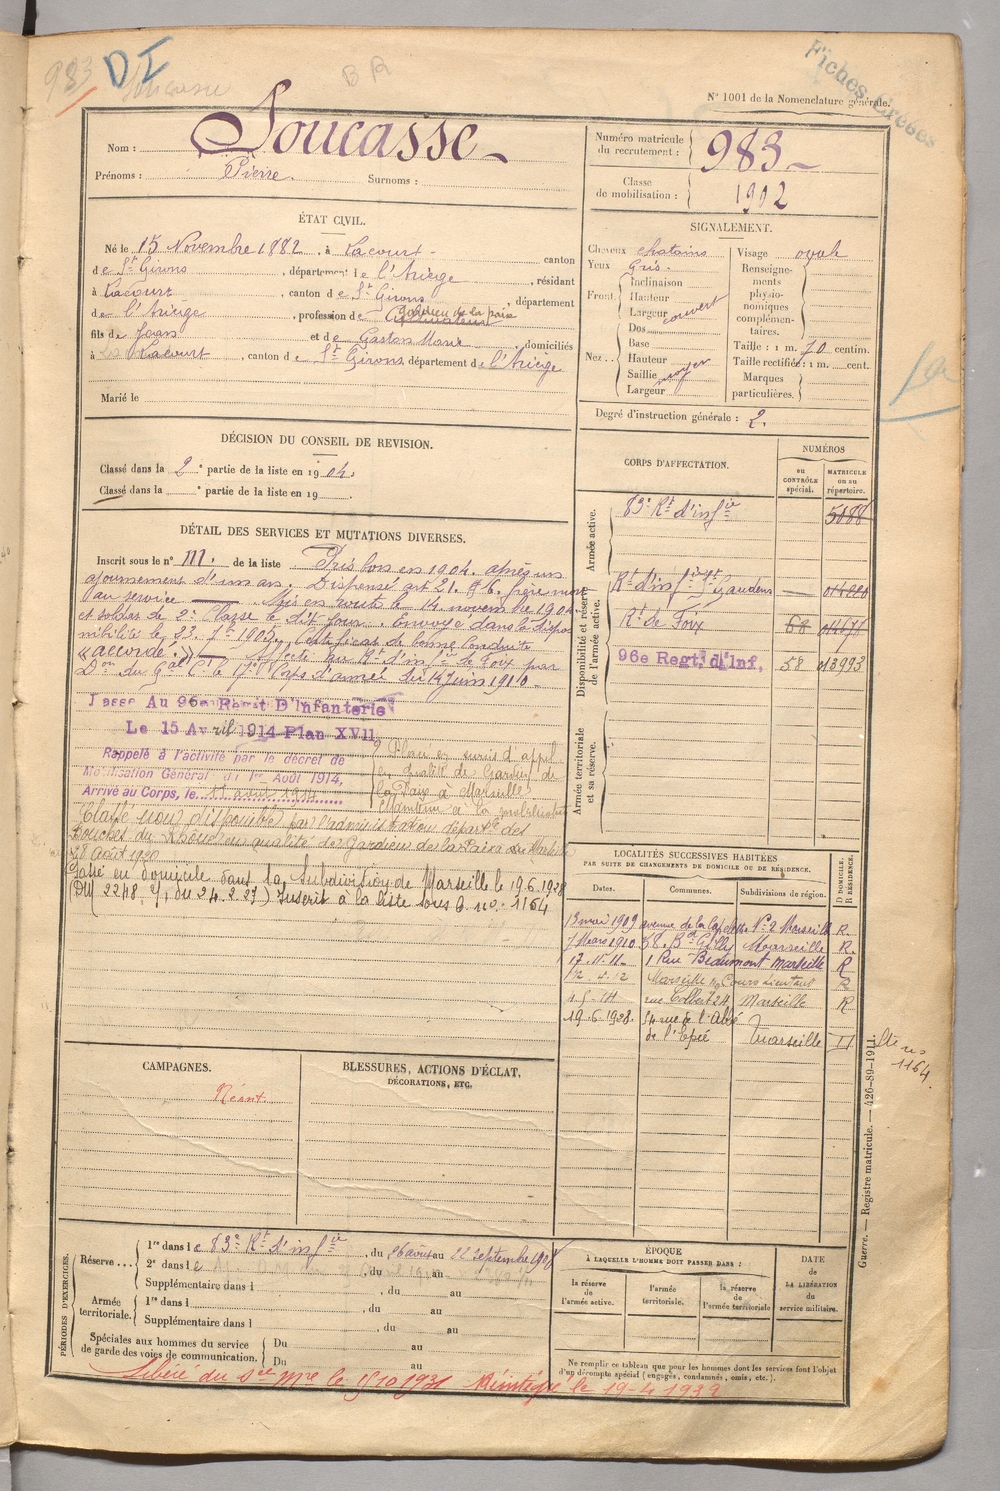 983 DI
BR
Fiches Créées
N° 1001 de la Nomenclature générale.
Nom : Soucasse
Prénoms : Pierre. Surnoms :
Numéro matricule du recrutement : 983
Classe de mobilisation : 1902
ÉTAT CIVIL.
Né le 15 Novembre 1882, à Lacourt canton
de St Girons, département de l'Ariège, résidant
à Lacourt, canton de St Girons, département
de l'Ariège, profession de Cultivateur gardien de la paix
fils de Jean et de Gaston Marie, domiciliés
à Lacourt, canton de St Girons, département de l'Ariège
Marié le
SIGNALEMENT.
Cheveux chatains
Yeux Gris.
Front. Inclinaison
Hauteur
Largeur couvert
Nez.. Dos
Base
Hauteur
Saillie moyen
Largeur
Visage ovale
Renseignements physionomiques complémentaires.
Taille : 1 m. 70 centim.
Taille rectifiée : 1 m. cent.
Marques particulières.
Degré d'instruction générale : 2.
DÉCISION DU CONSEIL DE REVISION.
Classé dans la 2e partie de la liste en 1904.
Classé dans la e partie de la liste en 19 .
CORPS D'AFFECTATION.
NUMÉROS
au CONTRÔLE spécial.
MATRICULE ou au répertoire.
Armée active.
83e Rt d'infie 5088
Disponibilité et réserve de l'armée active.
Rt d'infie St Gaudens
Rt de Foix 68
96e Regt. d'Inf. 58 013993
Armée territoriale et sa réserve.
DÉTAIL DES SERVICES ET MUTATIONS DIVERSES.
Inscrit sous le n° 111. de la liste Pris bon en 1904. après un
ajournement d'un an. Dispensé art 21. § 6. frère mort
au service — Mis en route le 14 novembre 1904
et soldat de 2e Classe le dit jour. Envoyé dans la dispo
nibilité le 23. 7re 1905. Certificat de bonne Conduite
« accordé. » — Affecté au Rt d'infie de Foix par
Don du Gal Ct le 17e Corps d'armée du 14 Juin 1910.
Passé Au 96e Régit D'Infanterie
Le 15 Avril 1914 Plan XVII
Rappelé à l'activité par le décret de
Mobilisation Général du 1er Août 1914,
Arrivé au Corps, le 11 août 1914
Placé en sursis d'appel
en qualité de Gardien de
la Paix à Marseille
Classé non disponible par l'administration départle des
Bouches du Rhône en qualité de Gardien de la Paix de Marseille
28 Août 1920
Passé en domicile dans la Subdivision de Marseille le 19.6.1928
(DM 2248, 2/1 du 24.2.27) Inscrit à la liste sous le no. 1164
LOCALITÉS SUCCESSIVES HABITÉES
PAR SUITE DE CHANGEMENTS DE DOMICILE OU DE RÉSIDENCE.
Dates. Communes. Subdivisions de région. D DOMICILE. R RÉSIDENCE.
13 mai 1909 avenue de la Capelette No 2 Marseille R
7 Mars 1910 58. Bd Gilly Marseille R.
17-11-11- 1 Rue Beaumont Marseille R
12. 4. 12 Marseille Cours Lieutaud R
rue Colbert 24 Marseille R
19.6.1928. 54 rue de l'Abbé
de l'Epée Marseille D
lte no
1164.
CAMPAGNES.
Néant.
BLESSURES, ACTIONS D'ÉCLAT,
DÉCORATIONS, ETC.
Guerre. — Registre matricule. — 426-89-1911.
PÉRIODES D'EXERCICES.
Réserve... 1re dans le 83e Rt d'infie, du 26 août au 22 Septembre 1908
2e dans le , du au
Supplémentaire dans l , du au
Armée territoriale. 1re dans l , du au
Supplémentaire dans l , du au
Spéciales aux hommes du service de garde des voies de communication. Du au
Du au
ÉPOQUE
À LAQUELLE L'HOMME DOIT PASSER DANS :
la réserve de l'armée active.
l'armée territoriale.
la réserve de l'armée territoriale
DATE de LA LIBÉRATION du service militaire.
Ne remplir ce tableau que pour les hommes dont les services font l'objet
d'un décompte spécial (engagés, condamnés, omis, etc.).
Libéré du Sce Mre le 15 10 1931 Réintégré le 19-4 1932